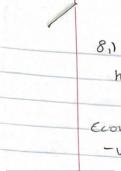 8,)
h
Econ
-u